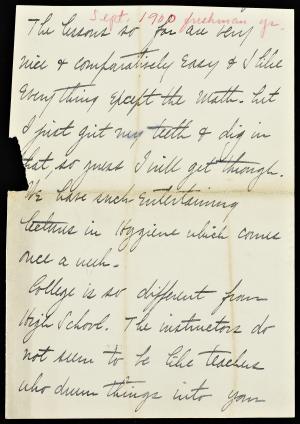 Sept. 1900 freshman yr.
The lessons so far are very
nice & comparatively easy & I like
everything except the Math. but
I just grit my teeth & dig in
that, so guess I will get through.
We have such entertaining
lectures in Hygiene which comes
once a week.
College is so different from
High School. The instructors do
not seem to be like teachers
who drum things into your